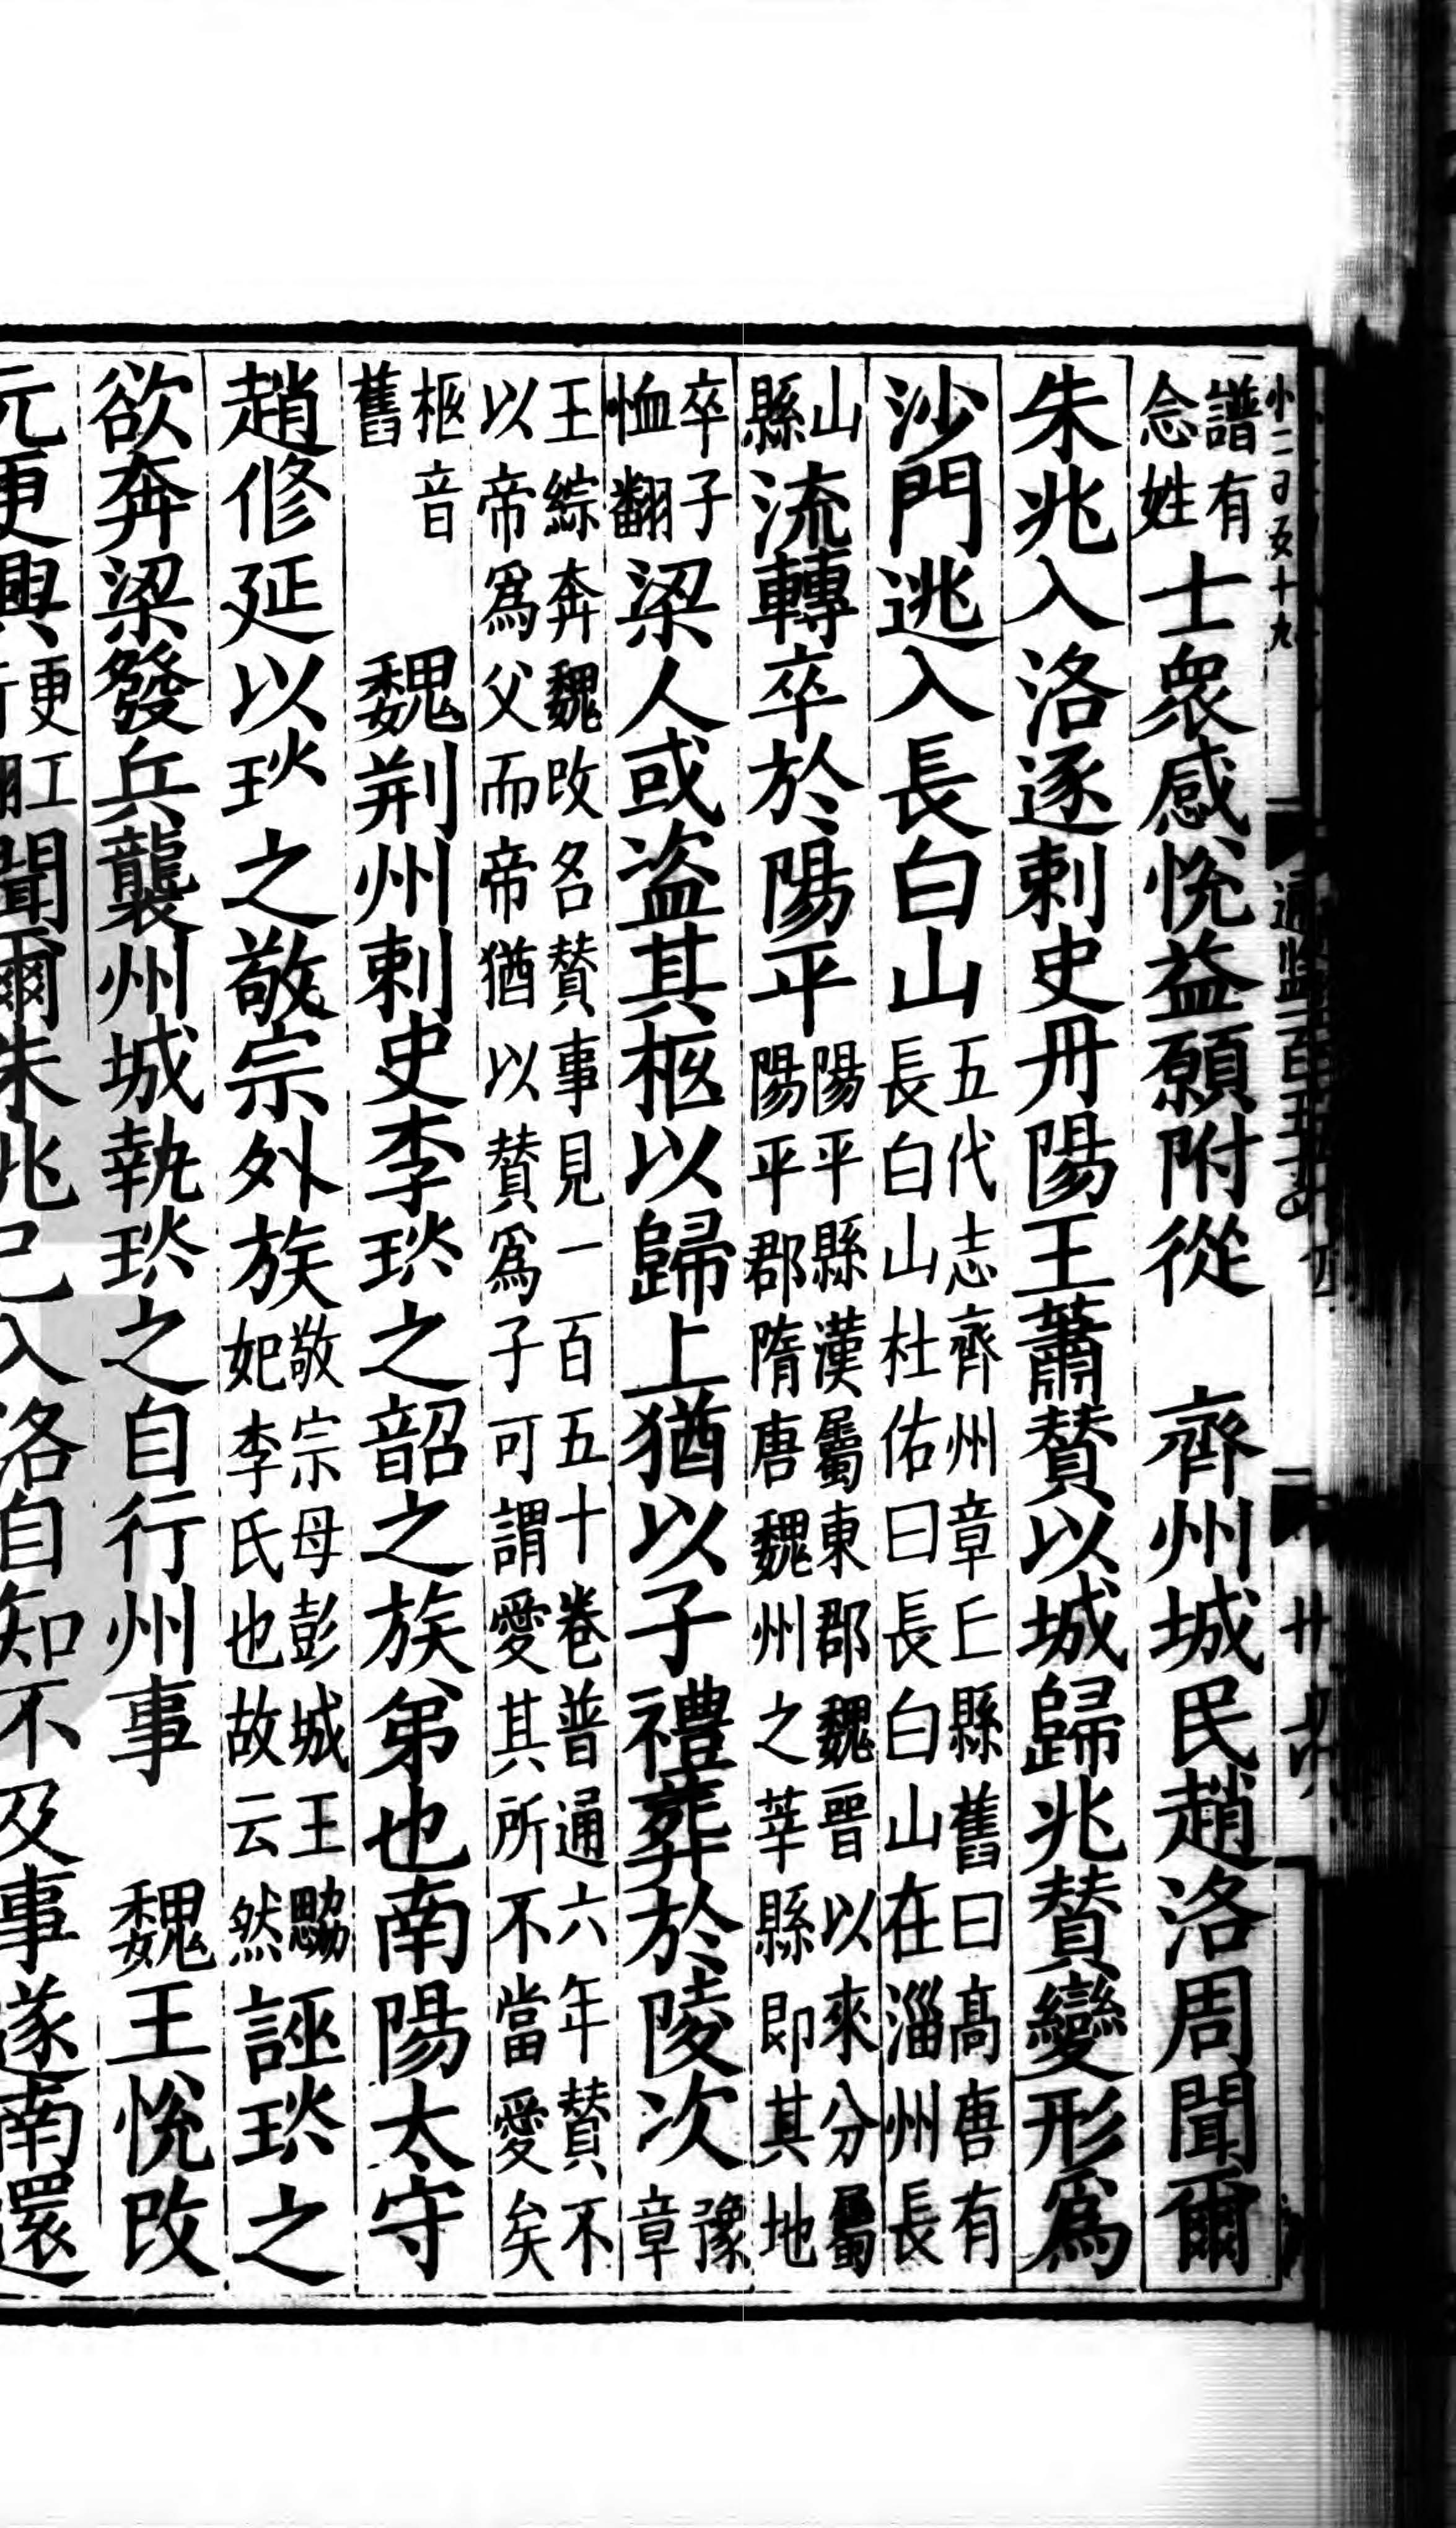 小二百五十九
通監一百五十四
譜有念姓士衆感恱益願附從　齊州城民趙洛周聞爾
朱兆入洛逐刺史丹陽王蕭賛以城歸兆賛變形爲
沙門逃入長白山五代志齊州章丘縣舊曰髙唐有長白山杜佑曰長白山在淄州長
山縣流轉卒於陽平陽平縣漢屬東郡魏晉以來分屬陽平郡隋唐魏州之莘縣即其地
卒子恤翻梁人或盗其柩以歸上猶以子禮葬於陵次豫章
王綜奔魏改名賛事見一百五十卷普通六年賛不以帝爲父而帝猶以賛爲子可謂愛其所不當愛矣
柩音舊　魏荆州刺史李琰之韶之族弟也南陽太守
趙修延以琰之敬宗外族敬宗母彭城王勰妃李氏也故云然誣琰之
欲奔梁發兵襲州城執琰之自行州事　魏王恱改
元更興更工聞爾朱兆已入洛自知不及事遂南還